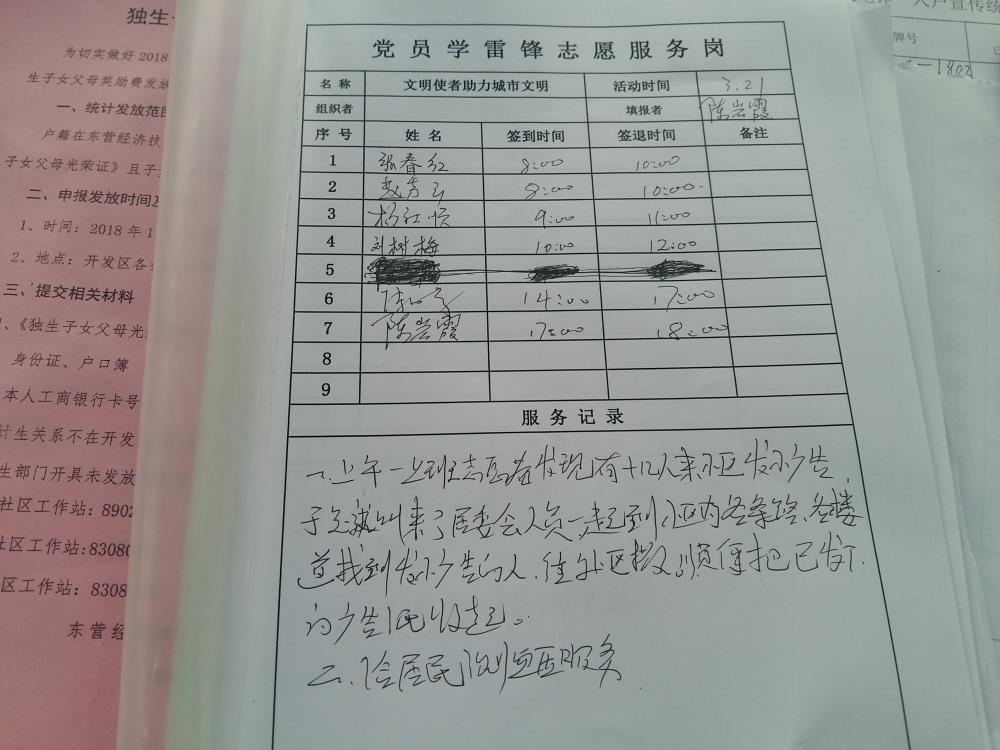 独生
为切实做好2018
生子女父母奖励费发放
一、统计发放范围
户籍在东营经济技
子女父母光荣证》且子
二、申报发放时间及
1、时间：2018年1
2、地点：开发区各
三、提交相关材料
、《独生子女父母光
身份证、户口簿
本人工商银行卡号
计生关系不在开发
生部门开具未发放
社区工作站：8902
社区工作站：83080
区工作站：8308
东营经
党员学雷锋志愿服务岗
名称 文明使者助力城市文明 活动时间 3.21
组织者 填报者 陈岩霞
序号 姓名 签到时间 签退时间 备注
1 张春红 8:00 10:00
2 8:00 10:00
3 杨红顺 9:00 11:00
4 刘树梅 10:00 12:00
5
6 14:00 17:00
7 陈岩霞 17:00 18:00
8
9
服务记录
一、上午一上班志愿者发现有十几人来小区发小广告，
于是叫来了居委会人员一起到小区内各条路、各楼
道找到发小广告的人，往外区撵，顺便把已发下
的广告收起。
二、给居民测血压服务
入户宣传统
牌号
-1802